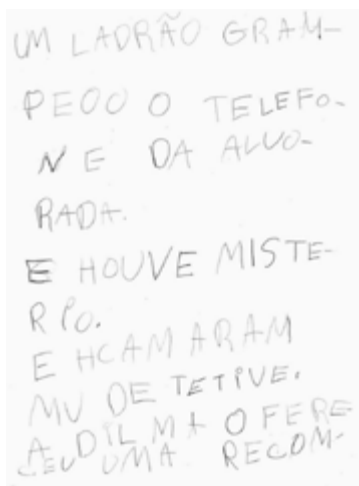 UM LADRÃO GRAM-
PEOO O TELEFO-
NE DA ALVO-
RADA.
E HOUVE MISTE-
RIO.
E HCAMARAM
MU DETETIVE.
A DILMA OFERE
CEU UMA RECOM-